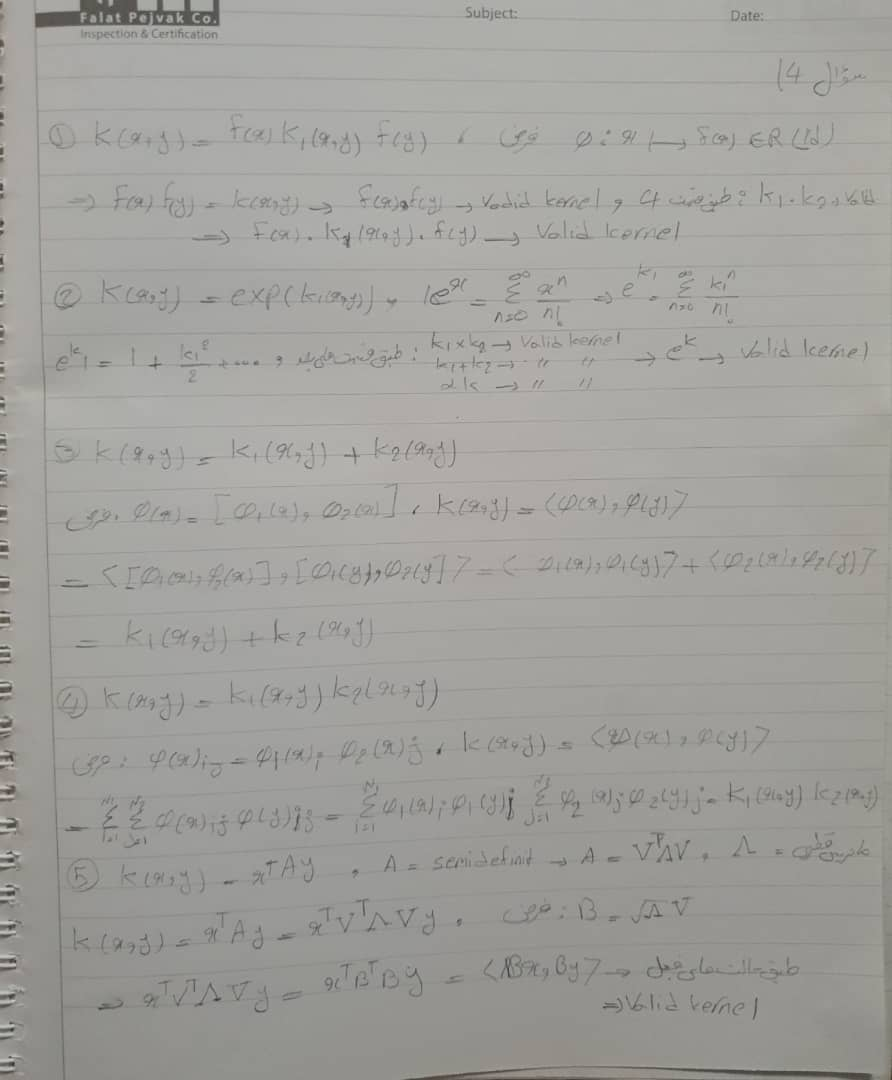 Falat Pejvak Co.
Inspection & Certification
Subject:
Date:
سؤال 4)
① k(x,y) = f(x) k₁(x,y) f(y) ، فرض φ: x ↦ f(x) ∈ R (1d)
⇒ f(x) f(y) = k(x,y) → f(x).f(y) → Valid kernel و طبق قسمت 4 : k₁.k₂ → Valid
⇒ f(x). k₁(x,y). f(y) → Valid kernel
② k(x,y) = exp(k₁(x,y)) , e^x = Σ_{n=0}^{∞} x^n/n! ⇒ e^{k₁} = Σ_{n=0}^{∞} k₁^n/n!
e^{k₁} = 1 + k₁²/2 + ... و طبق قسمت : k₁×k₂ → Valid kernel → e^k → Valid kernel
k₁+k₂ → " "
αk → " "
③ k(x,y) = k₁(x,y) + k₂(x,y)
فرض. φ(x) = [φ₁(x), φ₂(x)] ، k(x,y) = ⟨φ(x), φ(y)⟩
= ⟨[φ₁(x), φ₂(x)], [φ₁(y), φ₂(y]⟩ = ⟨φ₁(x), φ₁(y)⟩ + ⟨φ₂(x), φ₂(y)⟩
= k₁(x,y) + k₂(x,y)
④ k(x,y) = k₁(x,y) k₂(x,y)
فرض : φ(x)ᵢⱼ = φ₁(x)ᵢ φ₂(x)ⱼ ، k(x,y) = ⟨φ(x), φ(y)⟩
= Σ_{i=1}^{N₁} Σ_{j=1}^{N₂} φ(x)ᵢⱼ φ(y)ᵢⱼ = Σ_{i=1}^{N₁} φ₁(x)ᵢ φ₁(y)ᵢ Σ_{j=1}^{N₂} φ₂(x)ⱼ φ₂(y)ⱼ = k₁(x,y) k₂(x,y)
⑤ k(x,y) = xᵀAy , A = semidefinit → A = VᵀΛV , Λ = ماتریس قطری
k(x,y) = xᵀAy = xᵀVᵀΛVy , فرض : B = √Λ V
⇒ xᵀVᵀΛVy = xᵀBᵀBy = ⟨Bx, By⟩ → طبق حالت های قبل
⇒ Valid kernel